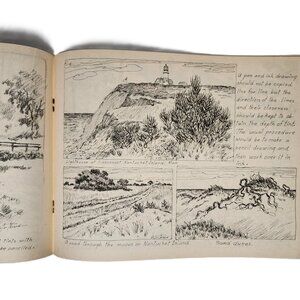 A pen and ink drawing
should not be copied
line for line but the
direction of the lines
and their closeness
should be kept to ob-
tain the depth of tint.
The usual procedure
would be to make a
pencil drawing and
then work over it in
ink.
Lighthouse at Siasconset Nantucket Island Mass.
Road through the moors on Nantucket Island
Sand dunes.
with